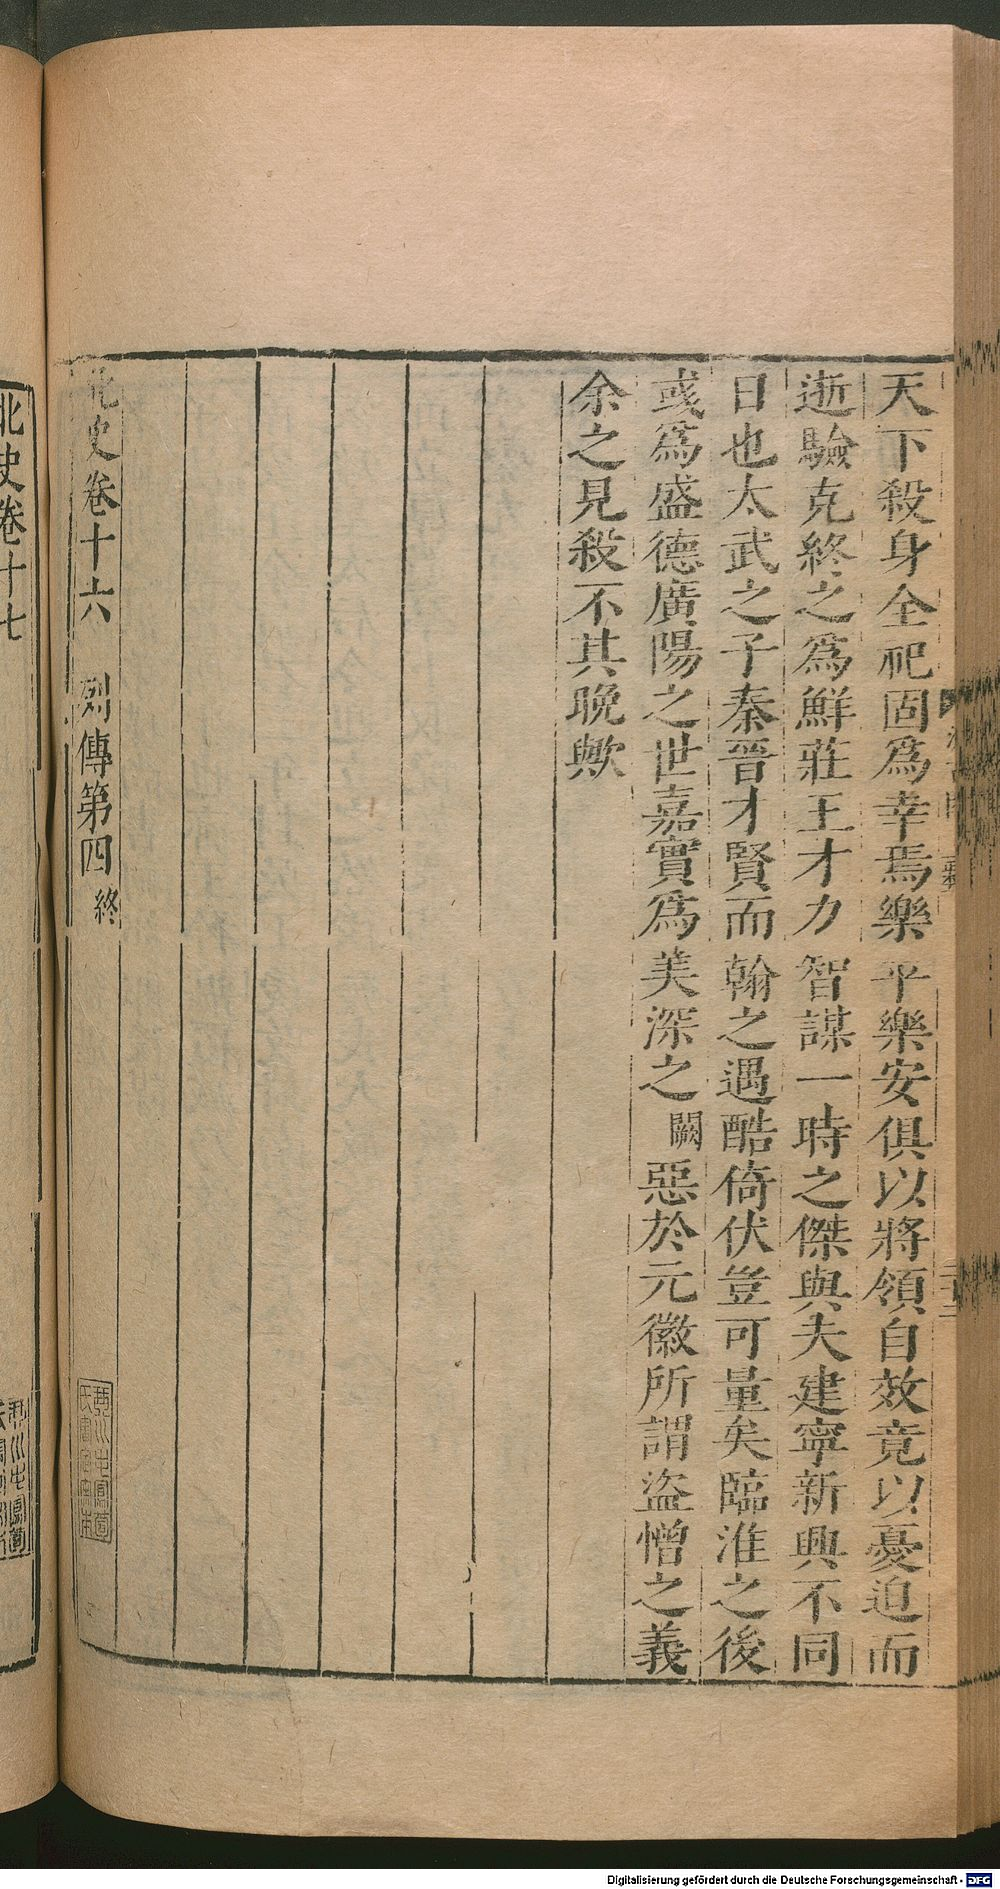 天下殺身全祀固爲幸焉樂平樂安俱以將領自效竟以憂迫而
逝驗克終之爲鮮莊王才力智謀一時之傑與夫建寧新興不同
日也太武之子秦晉才賢而翰之遇酷倚伏豈可量矣臨淮之後
彧爲盛德廣陽之世嘉實爲美深之闕惡於元徽所謂盜憎之義
余之見殺不其晚歟
北史卷十六 列傳第四終
北史卷十七
Digitalisierung gefördert durch die Deutsche Forschungsgemeinschaft - DFG